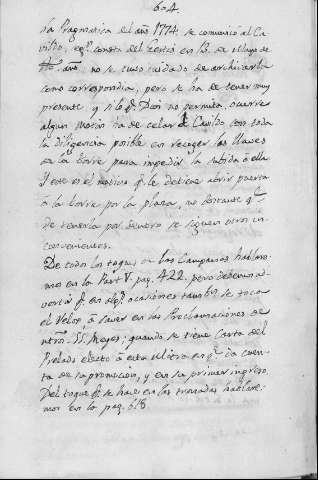 604
ña Pragmatica del año 1774 se comunicó al Ca-
vildo, cõ consta del en 13. de Mayo de
dho año no se tuvo cuidado de archivarla
como correspondia, pero se ha de tener muy
presente y si lo q.e Dios no permita, ocurrie
algun motin ha de celar el Cavildo con toda
la diligencia posible en recoger las llaves
de la torre para impedir la subida à ella
Y este es el motivo q.e le detiene abrir puerta
à la torre por la plaza, no obstante q.e
de tenerla por dentro se siguen otros in-
convenientes.
De todos los toques de las Campanas hablare-
mos en la Part V. pag. 422. pero debemos ad-
vertir q.e en alg.s ocasiones tamb.n se toca
el Velox, à saver en las Proclamaciones de
ntros SS. Reyes; quando se tiene Carta del
Prelado electo à esta Iglesia en q.e da cuen-
ta de su promocion, y en su primer ingreso.
Del toque q.e se hace en las tronadas hablare-
mos en la pag. 618